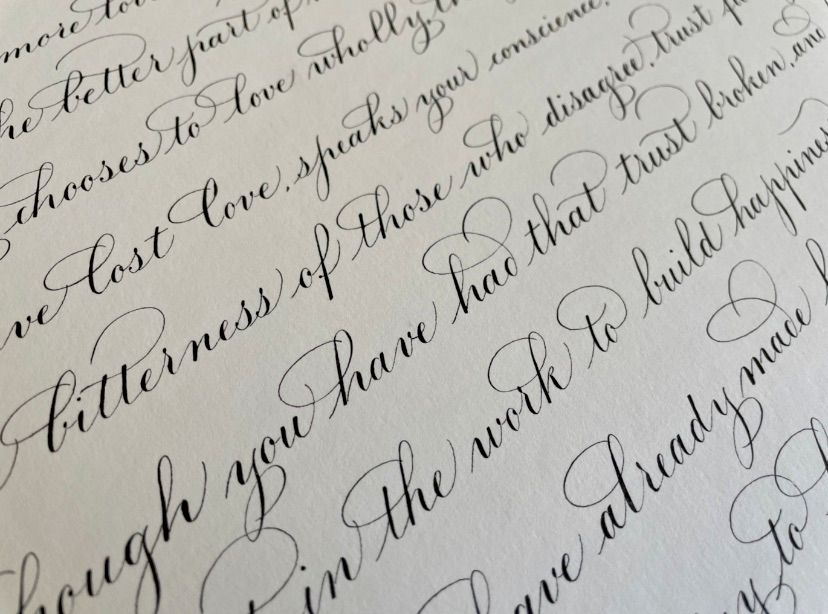 more
the better part of
chooses to love wholly,
lost love, speaks your conscience,
bitterness of those who disagree, trust
though you have had that trust broken, and
in the work to build happiness
have already made
to